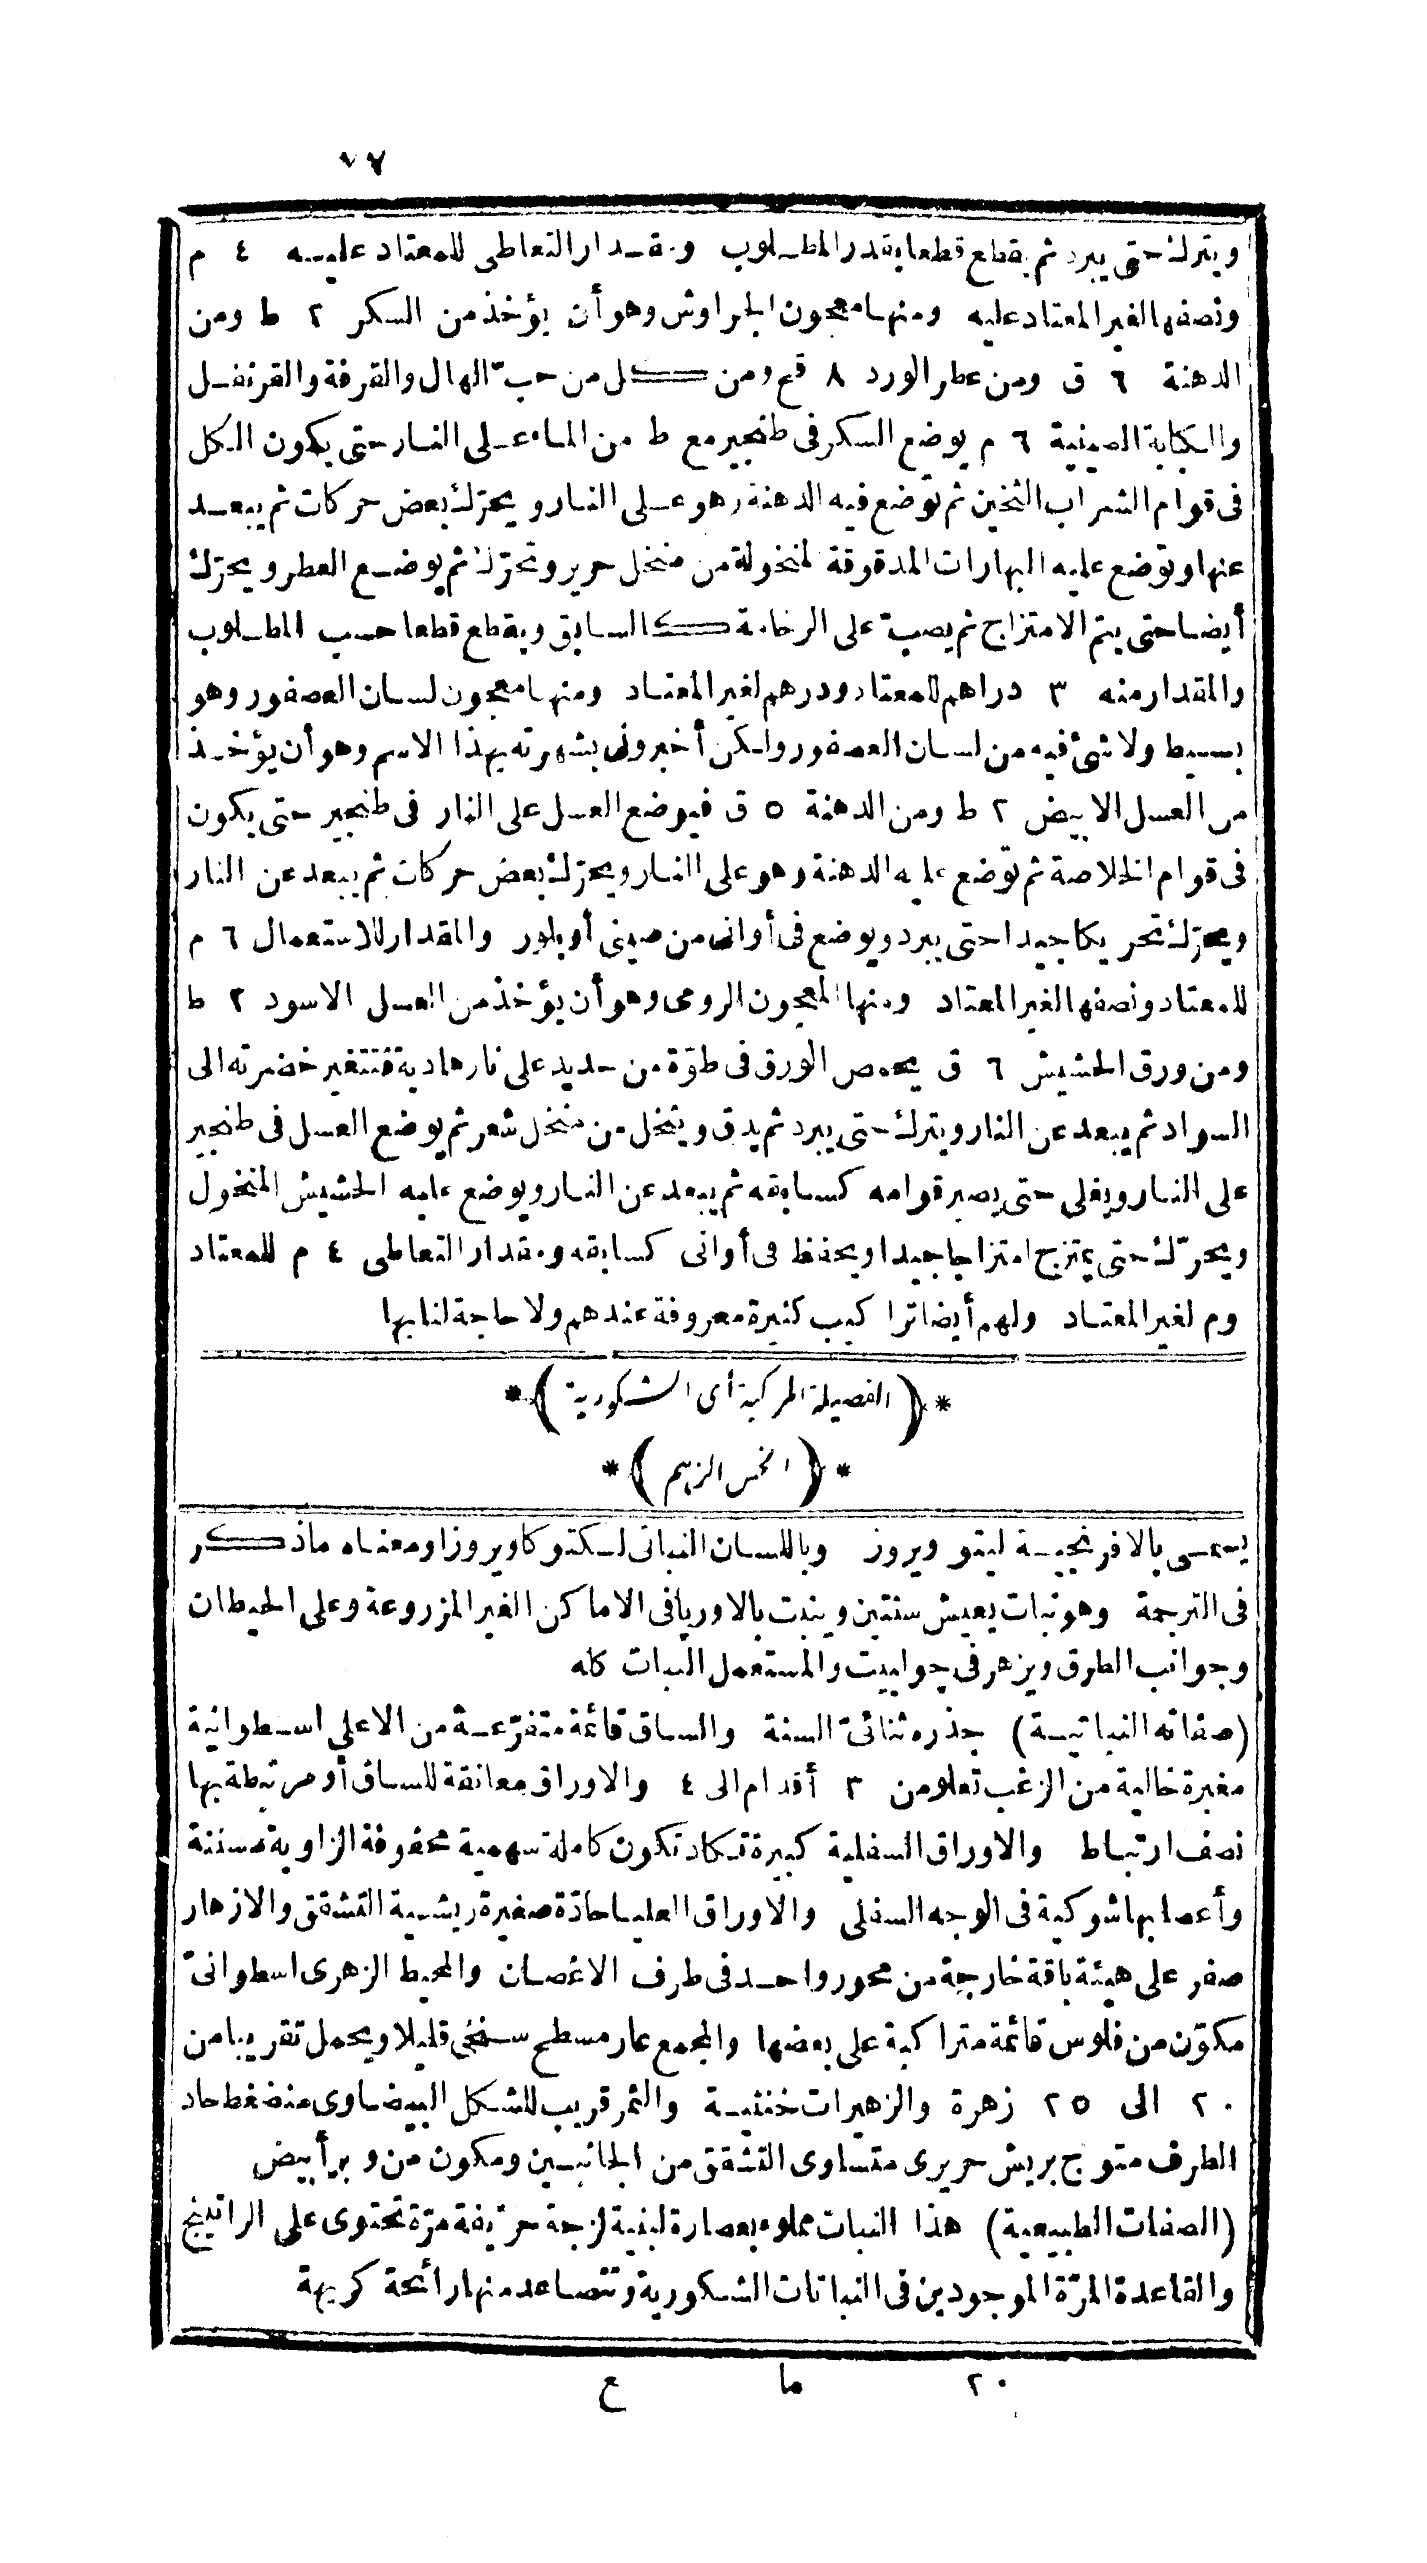 ٧٧
ويترك حتى يبرد ثم يقطع قطعا بقدر المطلوب ومقدار التعاطى للمعتاد عليه ٤ م
ونصفها الغير المعتاد عليه ومنها معجون الجراوش وهو أن يؤخذ من السكر ٢ ط ومن
الدهنة ٦ ق ومن عطر الورد ٨ قم ومن كل من حبّ الهال والقرفة والقرنفل
والكبابة الصينية ٦ م يوضع السكر فى طنجير مع ط من الماء على النار حتى يكون الكل
فى قوام الشراب الثخين ثم توضع فيه الدهنة وهو على النار ويحرّك بعض حركات ثم يبعد
عنها وتوضع عليه البهارات المدقوقة المنخولة من منخل حرير وتحرّك ثم يوضع العطر ويحرّك
أيضا حتى يتم الامتزاج ثم يصبّ على الرخامة كالسابق ويقطع قطعا حسب المطلوب
والمقدار منه ٣ دراهم للمعتاد ودرهم لغير المعتاد ومنها معجون لسان العصفور وهو
بسيط ولا شئ فيه من لسان العصفور ولكن أخبرونى بشهرته بهذا الاسم وهو أن يؤخذ
من العسل الابيض ٢ ط ومن الدهنة ٥ ق فيوضع العسل على النار فى طنجير حتى يكون
فى قوام الخلاصة ثم توضع عليه الدهنة وهو على النار ويحرّك بعض حركات ثم يبعد عن النار
ويحرّك تحريكا جيدا حتى يبرد ويوضع فى أوانى من صينى أو بلور والمقدار للاستعمال ٦ م
للمعتاد ونصفها الغير المعتاد ومنها المعجون الرومى وهو أن يؤخذ من العسل الاسود ٢ ط
ومن ورق الحشيش ٦ ق يحمص الورق فى طوّة من حديد على نار هادية فتتغير خضرته الى
السواد ثم يبعد عن النار ويترك حتى يبرد ثم يدق وينخل من منخل شعر ثم يوضع العسل فى طنجير
على النار ويغلى حتى يصير قوامه كسابقه ثم يبعد عن النار ويوضع عليه الحشيش المنخول
ويحرّك حتى يمتزج امتزاجا جيدا ويحفظ فى أوانى كسابقه ومقدار التعاطى ٤ م للمعتاد
وم لغير المعتاد ولهم أيضا تراكيب كثيرة معروفة عندهم ولا حاجة لنا بها
*(الفصيلة المركبة أى الشكورية)*
*(الخس الزهم)*
يسمى بالافرنجية ليتو ويروز وباللسان النباتى لكتوكا ويروزا ومعناه ما ذكر
فى الترجمة وهو نبات يعيش سنتين وينبت بالاوربا فى الاماكن الغير المزروعة وعلى الحيطان
وجوانب الطرق ويزهر فى جواييت والمستعمل النبات كله
(صفاته النباتية) جذره ثنائىّ السنة والساق قائمة متفرّعة من الاعلى اسطوانية
مغبرة خالية من الزغب تعلو من ٣ أقدام الى ٤ والاوراق معانقة للساق أو مرتبطة بها
نصف ارتباط والاوراق السفلية كبيرة تكاد تكون كاملة سهمية محفوفة الزاوية مسننة
وأعصابها شوكية فى الوجه السفلى والاوراق العليا حادّة صغيرة ريشية التشقق والازهار
صفر على هيئة باقة خارجة من محور واحد فى طرف الاغصان والمحيط الزهرى اسطوانىّ
مكوّن من فلوس قائمة متراكبة على بعضها والمجمع عار مسطح سنخى قليلا ويحمل تقريبا من
٢٠ الى ٢٥ زهرة والزهيرات خنثية والثمر قريب للشكل البيضاوى منضغط حاد
الطرف متوج بريش حريرى متساوى التشقق من الجانبين ومكون من وبر أبيض
(الصفات الطبيعية) هذا النبات مملوء بعصارة لبنية لزجة حرّيفة مرّة تحتوى على الراتينج
والقاعدة المرّة الموجودين فى النباتات الشكورية وتتصاعد منها رائحة كريهة
٢٠ ما ع